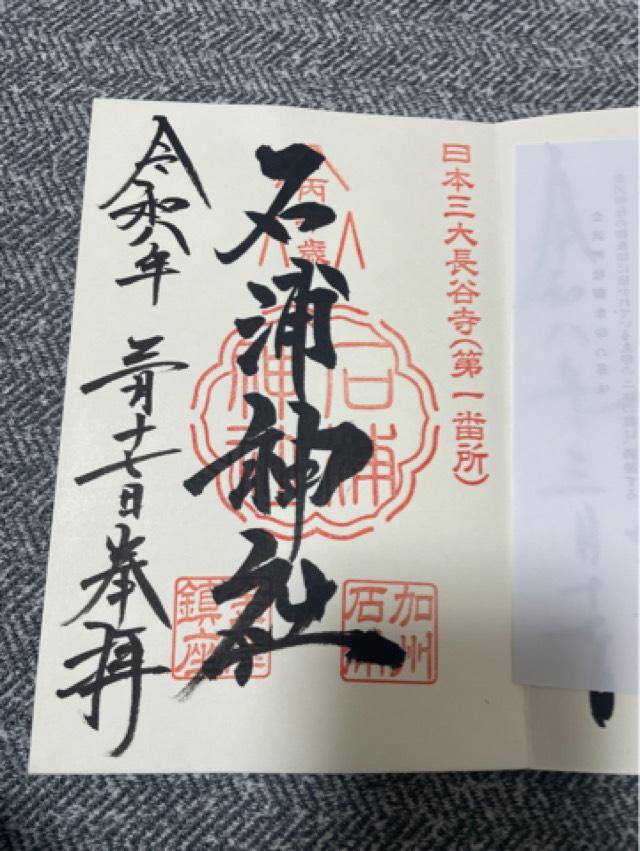 日本三大長谷寺(第一番所)
石浦神社
丙
歳
石浦
神社
加州
石浦
鎮座
令和八年 三月十七日 奉拝